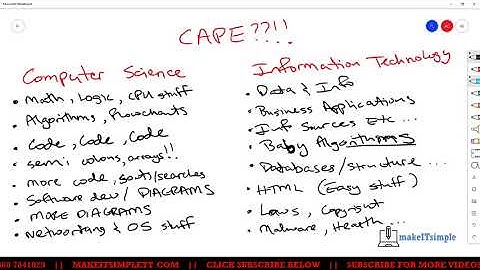 CAPE??!!
Computer Science
• Math, Logic, CPU stuff
• Algorithms, flowcharts
• Code, Code, Code
• semi colons, arrays!!
• more code, sorts/searches
• Software dev/ DIAGRAMS
• MORE DIAGRAMS
• Networking & OS stuff
Information Technology
• Data & Info
• Business Applications
• Info Sources Etc...
• Baby Algorithms
• Databases/structure ...
• HTML (Easy stuff)
• Laws, Copyright
• Malware, Health ...
makeITsimple
7841029 || MAKEITSIMPLETT.COM || CLICK SUBSCRIBE BELOW || SUBSCRIBE FOR MORE VIDEOS